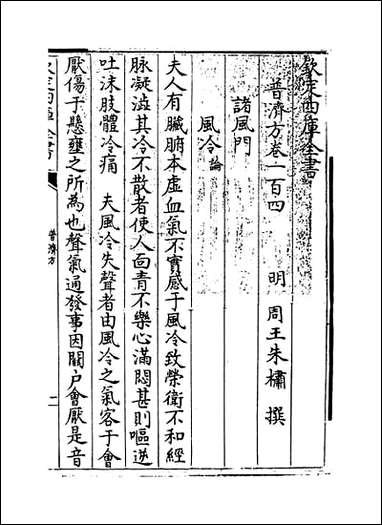 欽定四庫全書
普濟方卷一百四　明　周王朱橚　撰
諸風門
風冷論
夫人有臟腑本虛血氣不實感于風冷致榮衛不和經
脉凝澁其冷不散者使人面青不樂心滿悶甚則嘔逆
吐沫肢體冷痛　夫風冷失聲者由風冷之氣客于會
厭傷于懸壅之所為也聲氣通發事因關户會厭是音
欽定四庫全書
普濟方